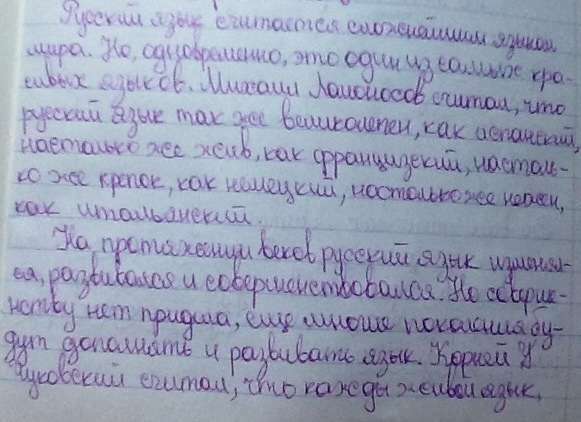 Русский язык считается сложнейшим языком
мира. Но, одновременно, это один из самых кра-
сивых языков. Михаил Ломоносов считал, что
русский язык так же великолепен, как испанский,
настолько же жив, как французский, настоль-
ко же крепок, как немецкий, настолько же нежен,
как итальянский.
На протяжении веков русский язык изменял-
ся, развивался и совершенствовался. Но соверше-
нству нет придела, еще многие поколения бу-
дут дополнять и развивать язык. Корней
Чуковский считал, что кажды живой язык,